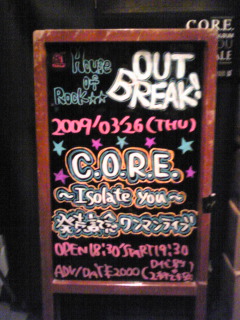 House of Rock☆☆
OUT BREAK!
2009/03/26 (THU)
C.O.R.E.
~Isolate you~
発売記念ワンマンライブ
OPEN 18:30 START 19:30
ADV/DAY ¥2000
C.O.R.E.
YOU